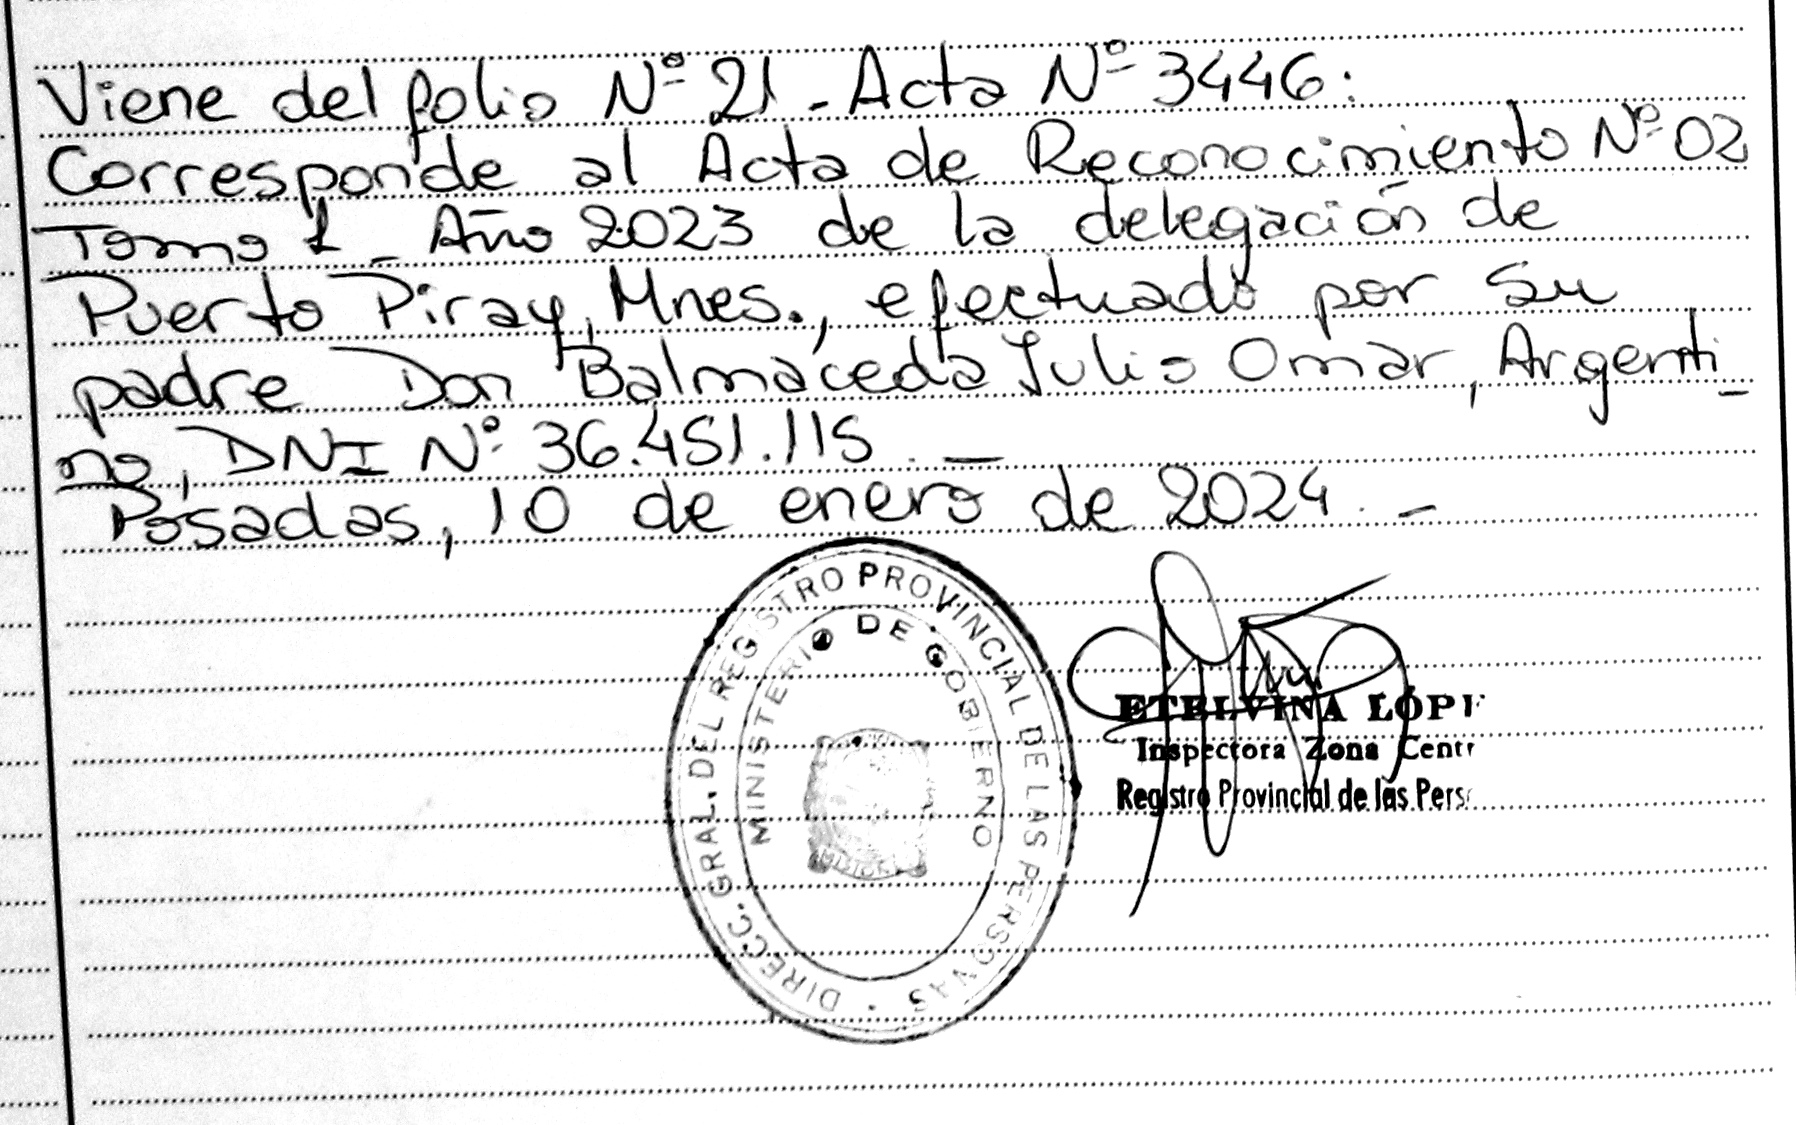 Viene del folio Nº 21 - Acta Nº 3446:
Corresponde al Acta de Reconocimiento Nº 02
Tomo 1 - Año 2023 de la delegación de
Puerto Piray, Mnes., efectuado por su
padre Don Balmaceda Julio Omar, Argenti_
no, DNI Nº 36.451.115. —
Posadas, 10 de enero de 2024. -
DIRECC. GRAL. DEL REGISTRO PROVINCIAL DE LAS PERSONAS
MINISTERIO DE GOBIERNO
ETELVINA LOP
Inspectora Zona Centr
Registro Provincial de las Pers